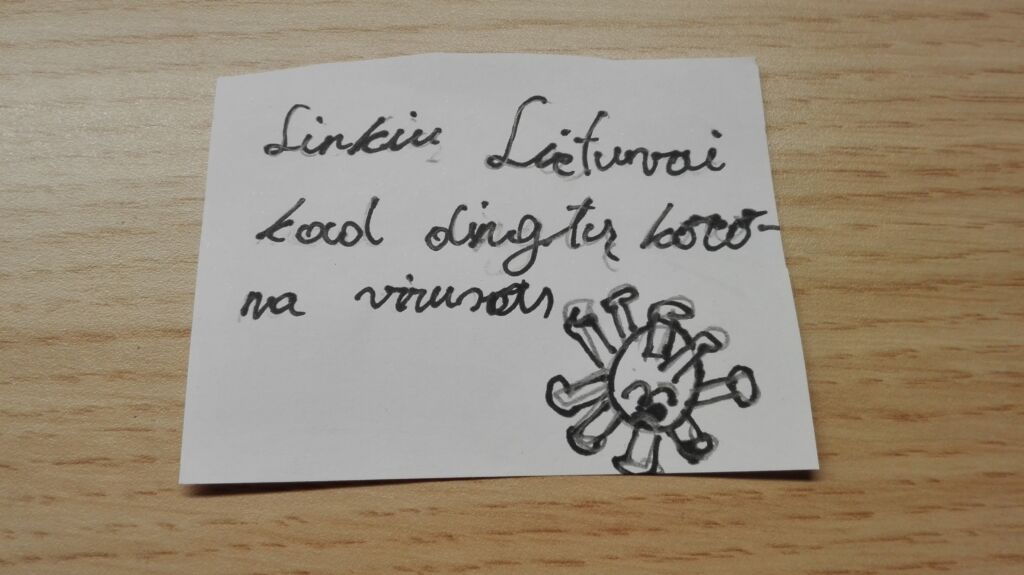 Linkiu Lietuvai
kad dingtų koro-
na virusas